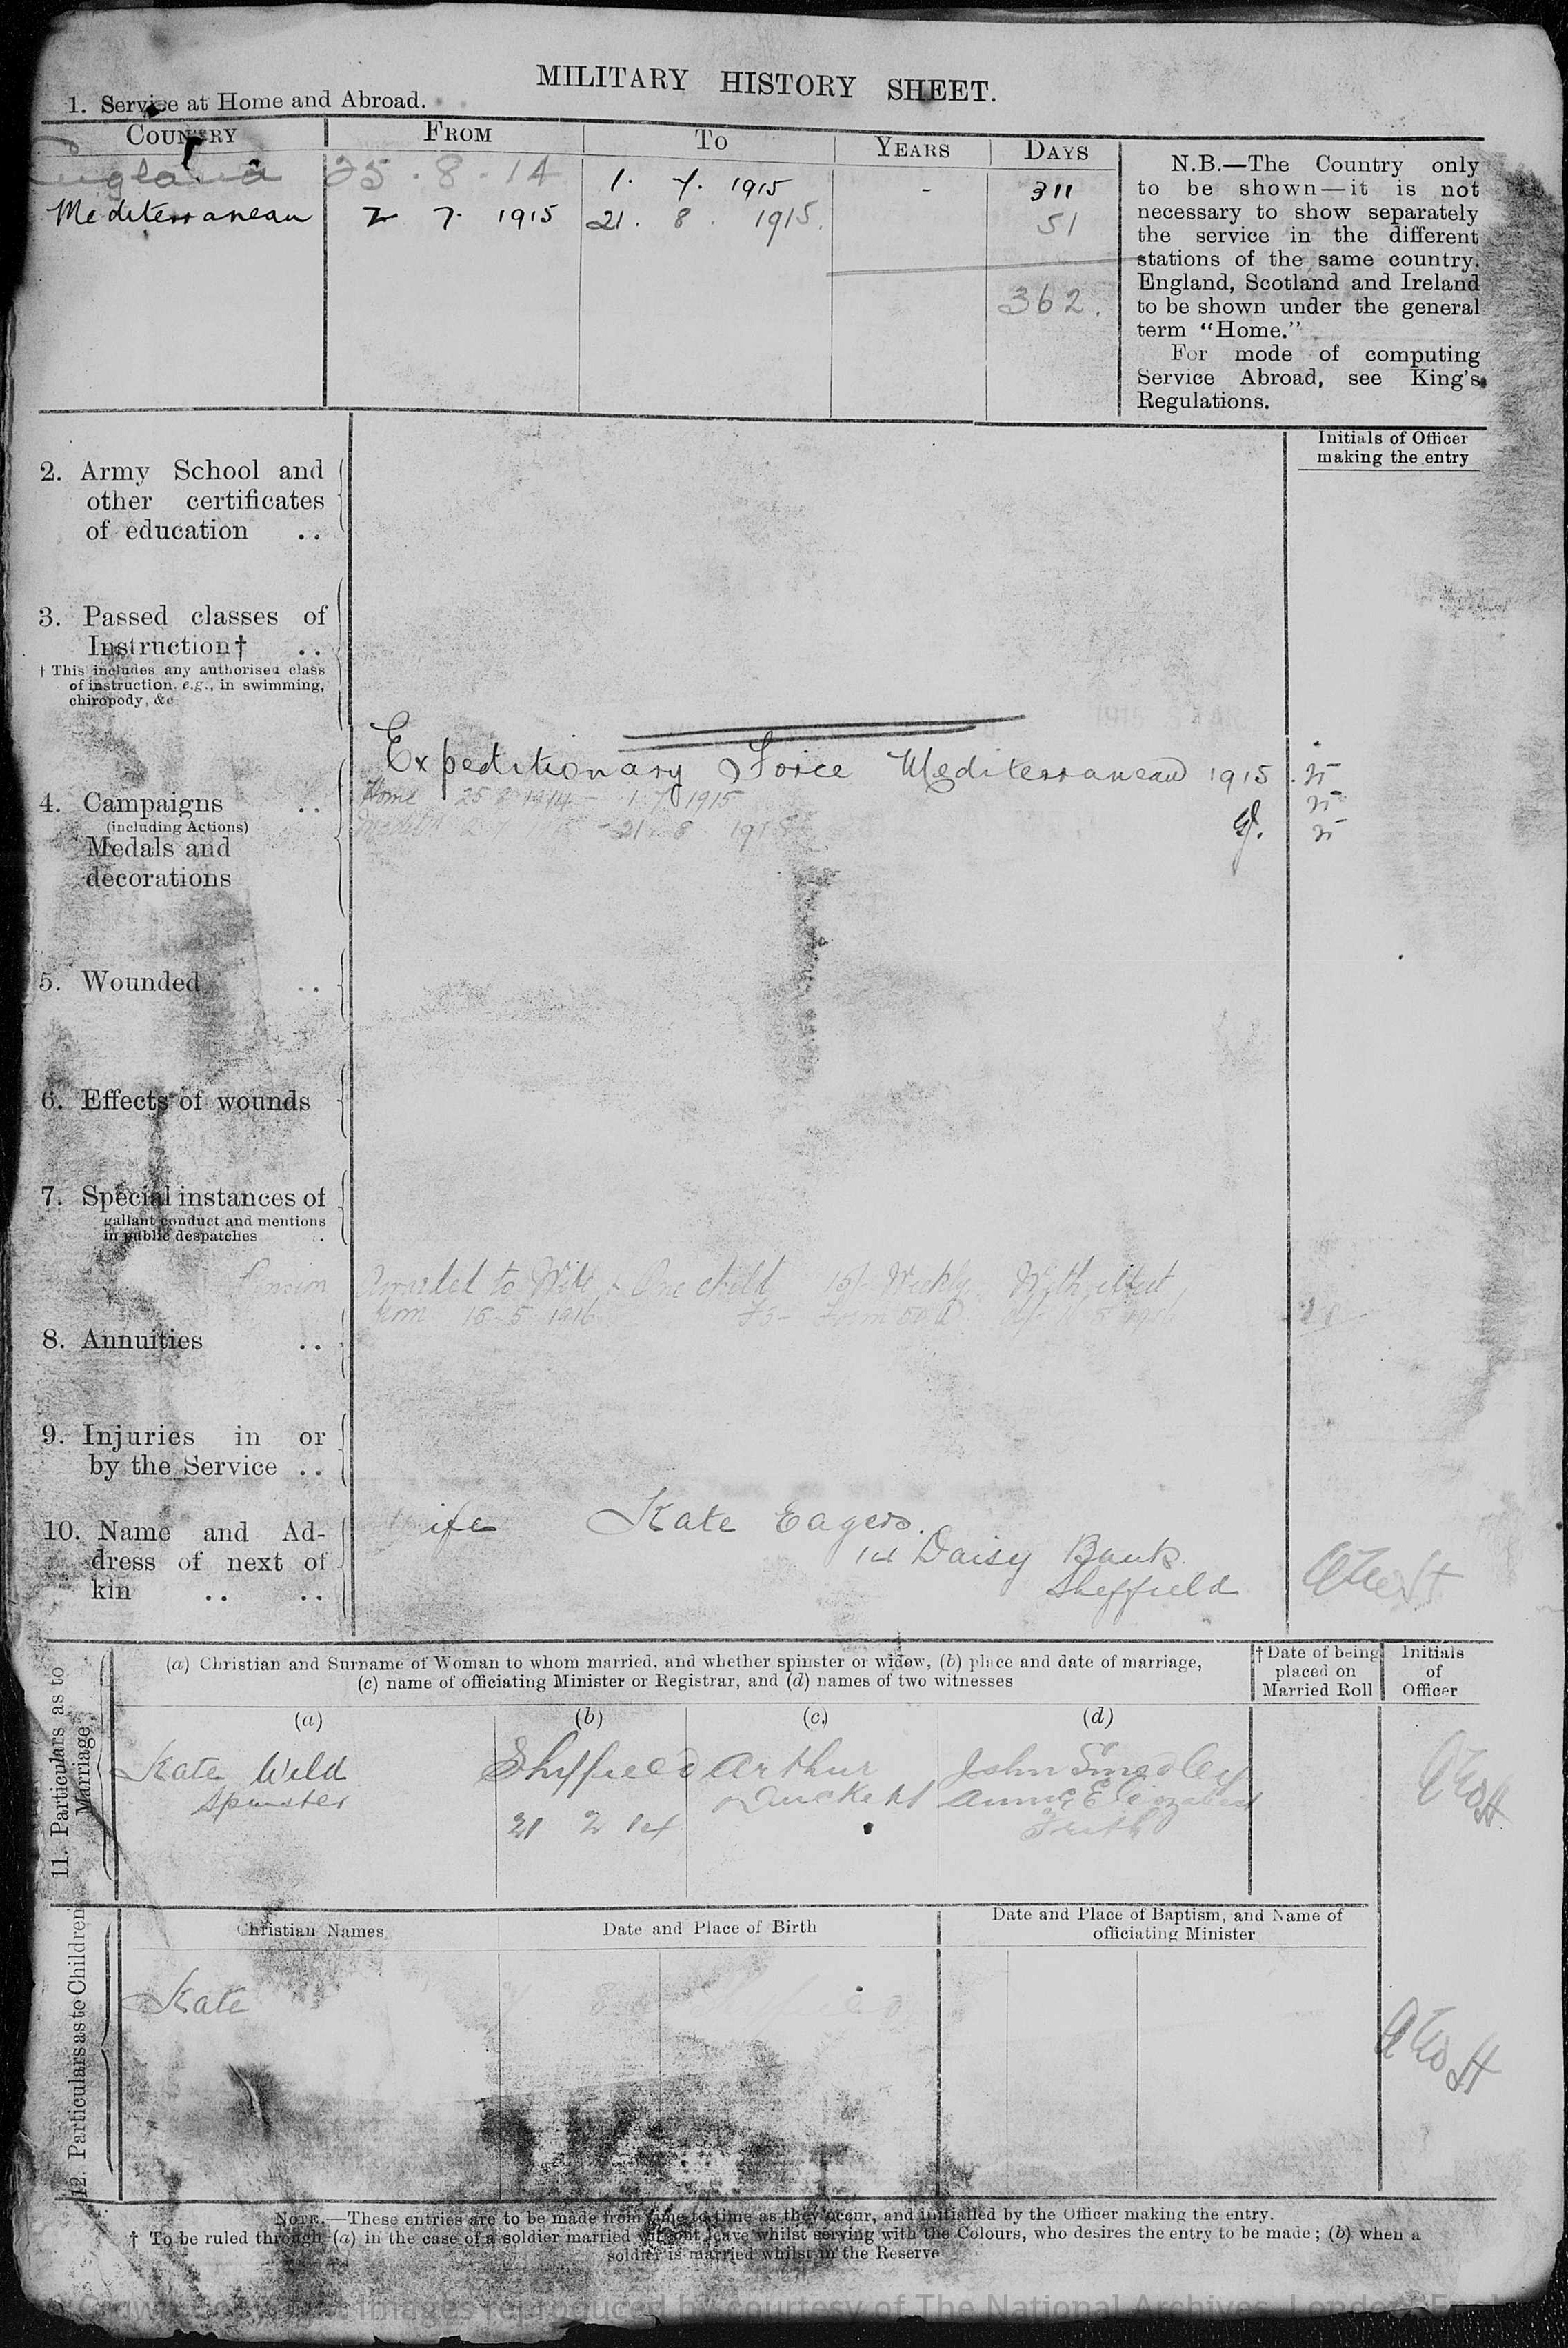 MILITARY HISTORY SHEET.
1. Service at Home and Abroad.
COUNTRY FROM TO YEARS DAYS
England 25 . 8 . 14 1. 7. 1915 - 311
Mediterranean 2 7. 1915 21. 8. 1915. 51
362.
N.B.—The Country only
to be shown—it is not
necessary to show separately
the service in the different
stations of the same country.
England, Scotland and Ireland
to be shown under the general
term "Home."
For mode of computing
Service Abroad, see King's
Regulations.
Initials of Officer
making the entry
2. Army School and
other certificates
of education ..
3. Passed classes of
Instruction† ..
† This includes any authorised class
of instruction, e.g., in swimming,
chiropody, &c
Expeditionary Force Mediterranean 1915
4. Campaigns ..
(including Actions)
Medals and
decorations
Home 25 8 1914 - 1. 7. 1915
21. 8. 1915
5. Wounded ..
6. Effects of wounds
7. Special instances of
gallant conduct and mentions
in public despatches ..
Pension Awarded to Wife & One child Weekly With effect
from 15-5-1916
8. Annuities ..
9. Injuries in or
by the Service ..
10. Name and Ad-
dress of next of
kin .. ..
Wife Kate Eagers.
14 Daisy Bank
Sheffield
11. Particulars as to
Marriage
(a) Christian and Surname of Woman to whom married, and whether spinster or widow, (b) place and date of marriage,
(c) name of officiating Minister or Registrar, and (d) names of two witnesses
† Date of being
placed on
Married Roll
Initials
of
Officer
(a) (b) (c) (d)
Kate Wild Sheffield Arthur John Smedley
Spinster Annie Elizabeth
21 2 14 Frith
12. Particulars as to Children
Christian Names Date and Place of Birth
Date and Place of Baptism, and Name of
officiating Minister
Kate
NOTE.—These entries are to be made from time to time as they occur, and initialled by the Officer making the entry.
† To be ruled through (a) in the case of a soldier married without leave whilst serving with the Colours, who desires the entry to be made; (b) when a
soldier is married whilst in the Reserve
Images reproduced by courtesy of The National Archives, London,